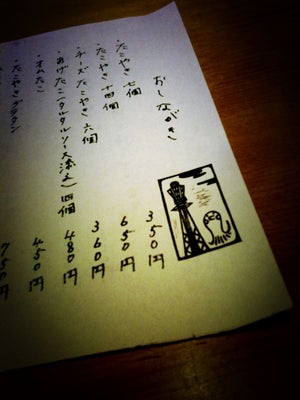 おしながき
・たこやき 七個 350円
・たこやき 十四個 650円
・チーズたこやき 六個 360円
・あげたこ(タルタルソース添え) 四個 480円
・オムたこ 450円
・たこやきグラタン 750円